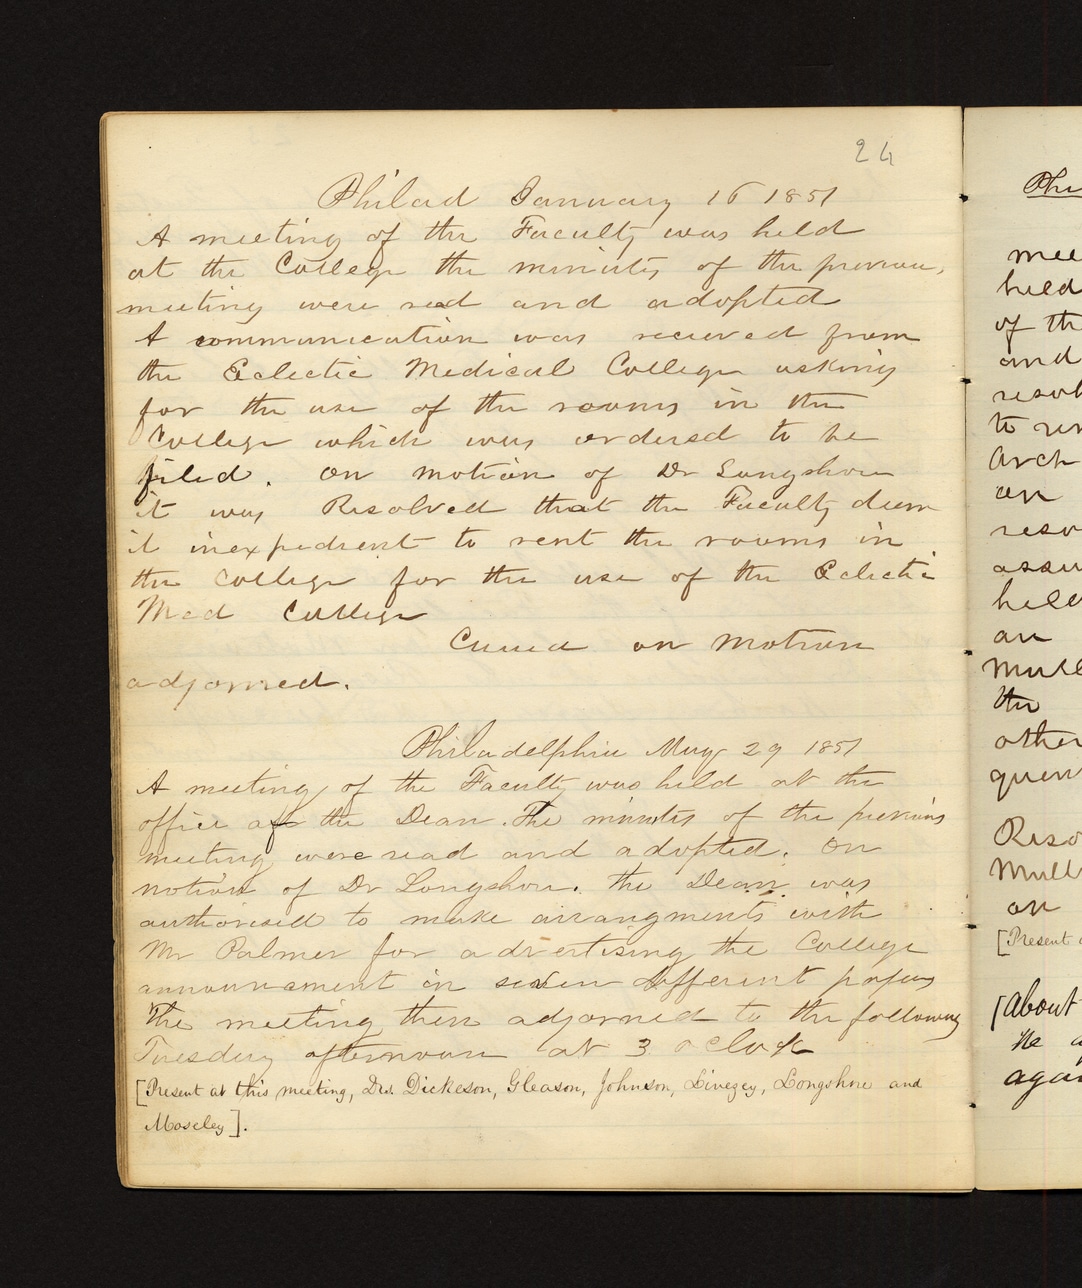 24
Philad January 16 1851
A meeting of the Faculty was held
at the College the minutes of the previous
meeting were read and adopted
A communication was recieved from
the Eclectic Medical College asking
for the use of the rooms in the
College which was ordered to be
filed. On motion of Dr Longshore
it was Resolved that the Faculty deem
it inexpedient to rent the rooms in
the College for the use of the Eclectic
Med College
on motion
adjorned.
Philadelphia May 29 1851
A meeting of the Faculty was held at the
office of the Dean. The minutes of the previous
meeting were read and adopted. On
motion of Dr Longshore. the Dean was
authorised to make arrangments with
Mr Palmer for advertising the College
announcment in different papers
The meeting then adjorned to the following
Tuesday afternoon at 3 o clock
[Present at this meeting, Drs. Dickeson, Gleason, Johnson, Livezey, Longshore and
Moseley].
Phi
mee
held
of th
and
resol
to ren
Arch
an
reso
assu
held
an
Mull
the
other
quen
Reso
Mull
on
[Present a
[About
he a
agai